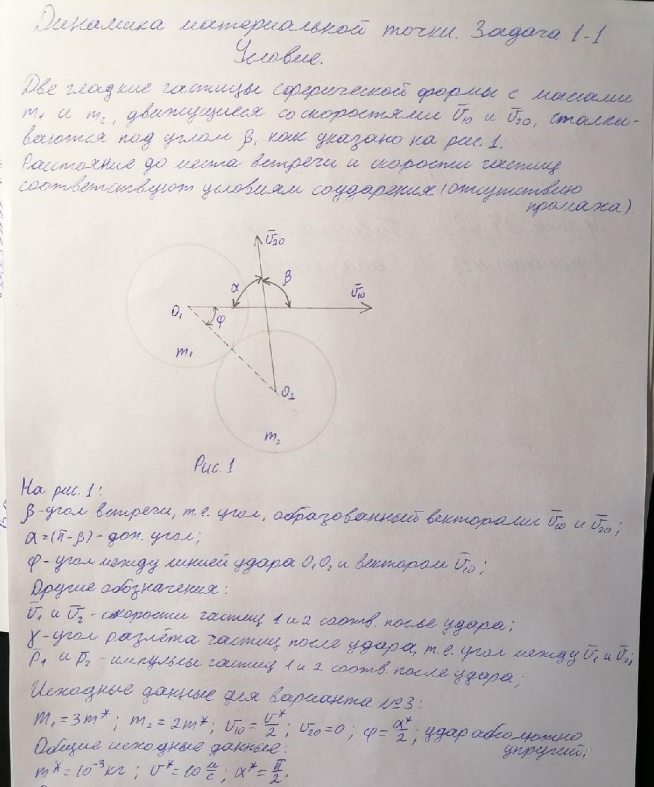 Динамика материальной точки. Задача 1-1
Условие.
Две гладкие частицы сферической формы с массами
m₁ и m₂, движущиеся со скоростями v̄₁₀ и v̄₂₀, сталки-
ваются под углом β, как указано на рис. 1.
Расстояние до места встречи и скорости частиц
соответствуют условиям соударения (отсутствию
промаха).
v̄₂₀
α β
v̄₁₀
O₁ φ
m₁
O₂
m₂
Рис. 1
На рис. 1:
β-угол встречи, т.е. угол, образованный векторами v̄₁₀ и v̄₂₀;
α=(π-β)- доп. угол;
φ- угол между линией удара O₁O₂ и вектором v̄₁₀;
Другие обозначения:
v̄₁ и v̄₂- скорости частиц 1 и 2 соотв. после удара;
γ-угол разлёта частиц после удара, т.е. угол между v̄₁ и v̄₂;
p̄₁ и p̄₂-импульсы частиц 1 и 2 соотв. после удара;
Исходные данные для варианта №3:
m₁=3m*; m₂=2m*; v₁₀=v*/2; v₂₀=0; φ=α*/2; удар абсолютно
упругий;
Общие исходные данные:
m*=10⁻³кг; v*=10 м/с; α*=π/2.